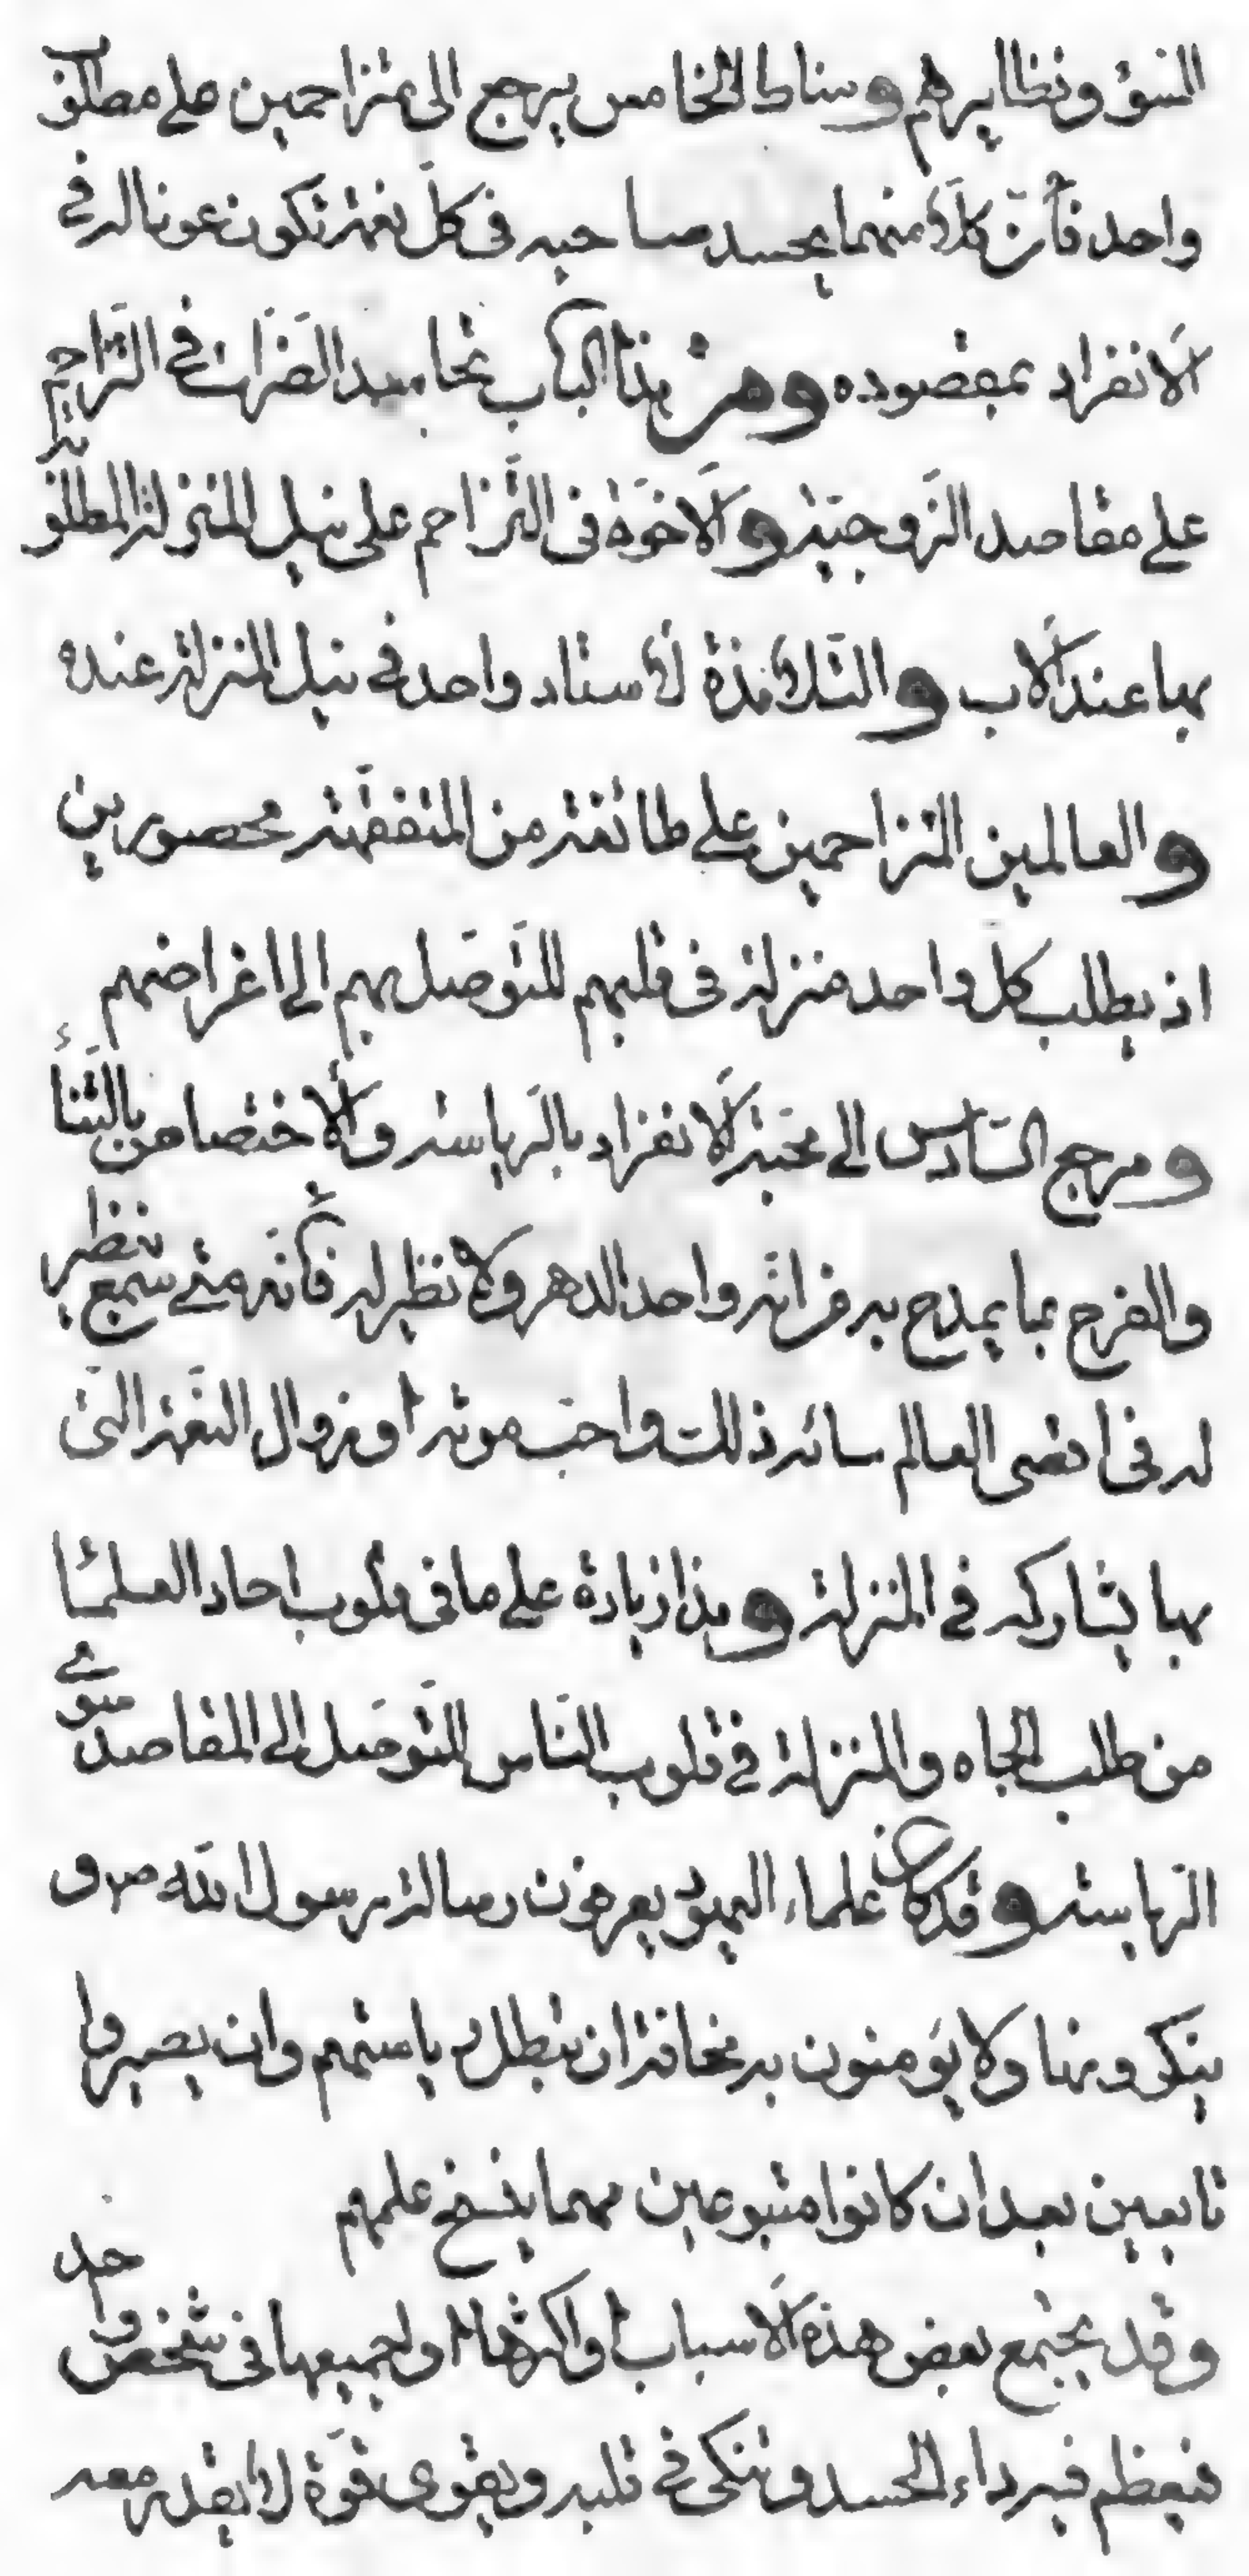 النسق ونظايرهم ومناط الخامس يرجع الى متزاحمين على مطلوب
واحد فأن كلا منهما يحسد صاحبه فى كل نعمة تكون عونا له فى
الانفراد بمقصوده ومن هذا الباب تحاسد الضرات فى التزاحم
على مقاصد الزوجية والاخوة فى التزاحم على نيل المنزلة المطلوبة
بها عند الاب والتلامذة لأستاد واحد فى نيل المنزلة عنده
والعالمين المتزاحمين على طائفة من المتفقهة محصورين
اذ يطلب كل واحد منزلة فى قلبهم للتوصل بهم الى اغراضهم
ومرجع السادس الى محبة الانفراد بالرياسة والاختصاص بالثناء
والفرح بما يمدح به من انه واحد الدهر ولا نظير له فانه متى سمع بنظير
له فى اقصى العالم سائه ذلك واحب موته او زوال النعمة التى
بها يشاركه فى المنزلة وهذا زيادة على ما فى قلوب احاد العلماء
من طلب الجاه والمنزلة فى قلوب الناس للتوصل الى المقاصد سوى
الرياسة وقد كان علماء اليهود يعرفون رسالة رسول الله ص و
ينكرونها ولا يؤمنون به مخافة ان تبطل رياستهم وان يصيروا
تابعين بعد ان كانوا متبوعين مهما ينسخ علمهم
وقد يجتمع بعض هذه الاسباب او اكثرها او جميعها فى شخص واحد
فيعظم فيه داء الحسد وتنكى فى قلبه ويقوى قوة لا يقدر معه